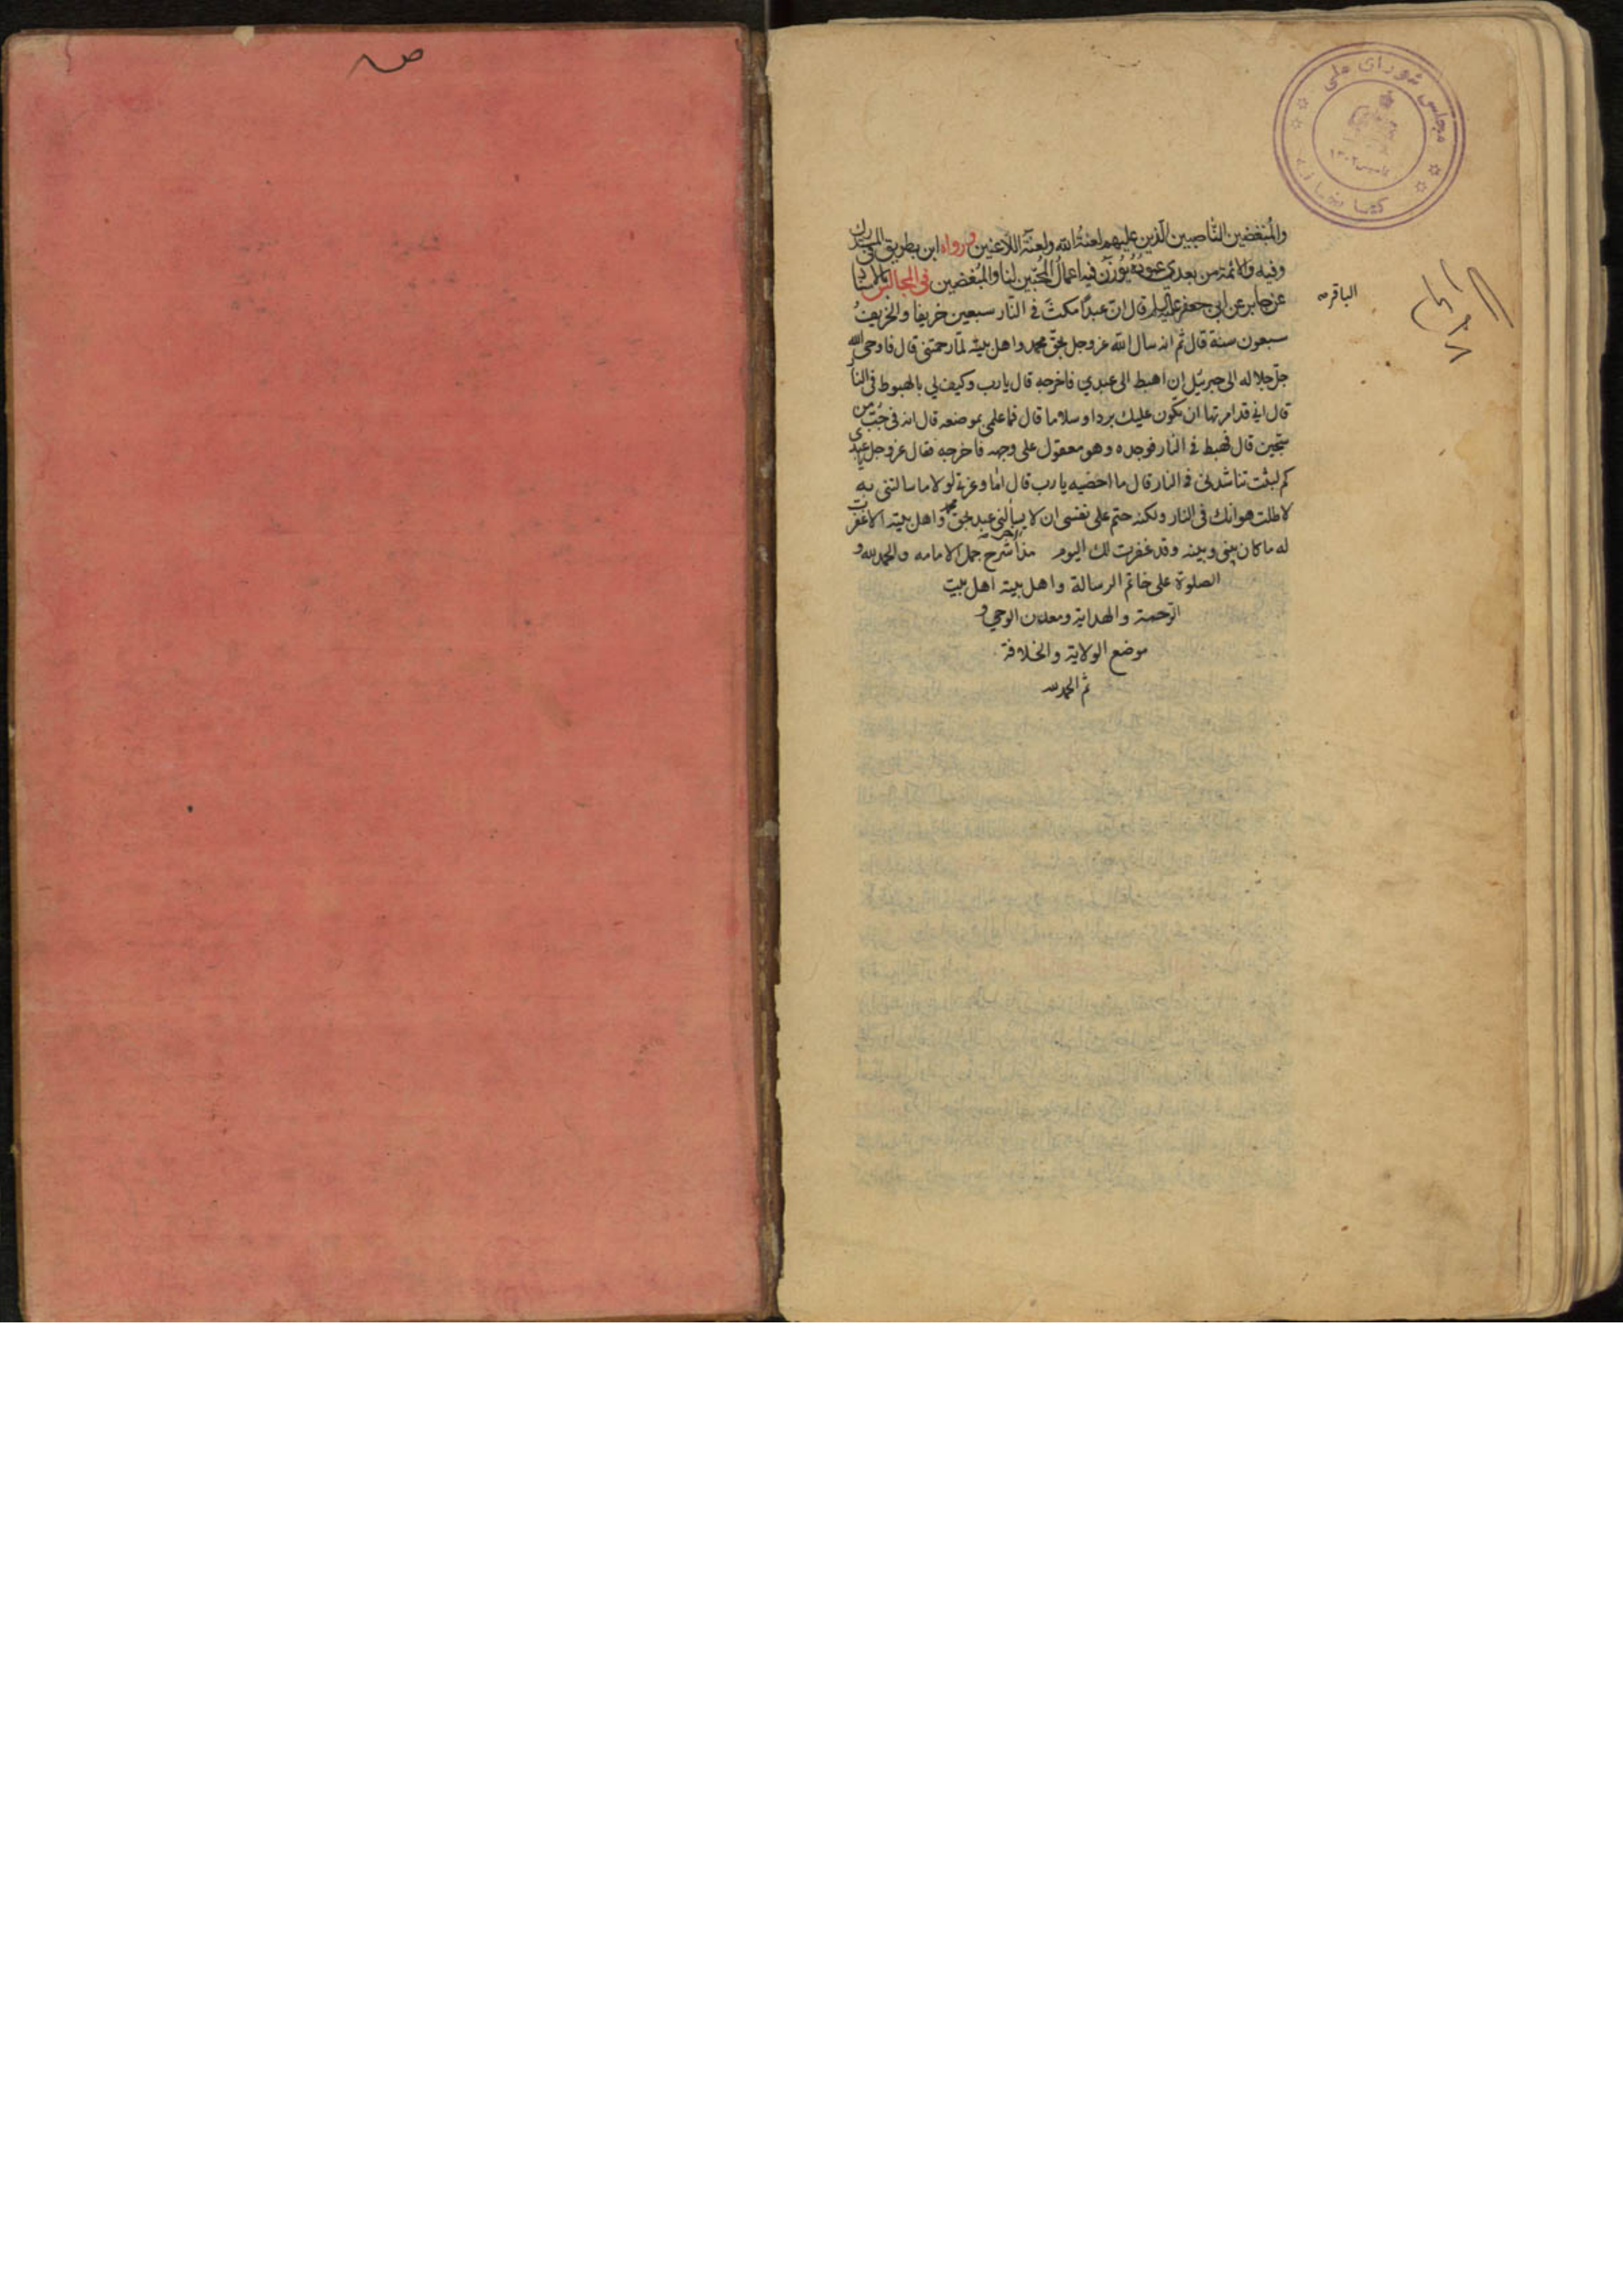 مجلس شورای ملی
والمبغضین الناصبین الذین علیهم لعنة الله ولعنة اللاعنین ورواه ابن بطریق فی المستدرک
وفیه والائمة من بعدی عموده یوزن فیه اعمال المحبین لنا والمبغضین فی المجالس بالاسناد
عن جابر عن ابی جعفر علیه السلام قال ان عبدا مکث فی النار سبعین خریفا والخریف
الباقر
سبعون سنة قال ثم انه سال الله عز وجل بحق محمد واهل بیته لما رحمتنی قال فاوحی الله
جل جلاله الی جبرئیل ان اهبط الی عبدی فاخرجه قال یارب وکیف لی بالهبوط فی النار
قال انی قد امرتها ان تکون علیک بردا وسلاما قال فما علمی بموضعه قال انه فی جب من
سجین قال فهبط فی النار فوجده وهو معقول علی وجهه فاخرجه فقال عز وجل یا عبدی
کم لبثت تناشدنی فی النار قال ما احصیه یا رب قال اما وعزتی لولا ما سالتنی به
لاطلت هوانک فی النار ولکنه حتم علی نفسی ان لا یسألنی عبد بحق محمد واهل بیته الا غفرت
له ما کان بینی وبینه وقد غفرت لک الیوم هذا شرح جمل الامامه والحمد لله و
الصلوة علی خاتم الرسالة واهل بیته اهل بیت
الرحمة والهدایة ومعدن الوحی و
موضع الولایة والخلافة
ثم الحمد لله